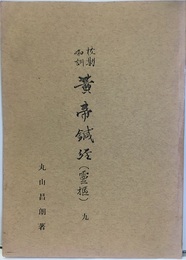 校勘
和訓
黃帝鍼経(靈樞)九
丸山昌朗著